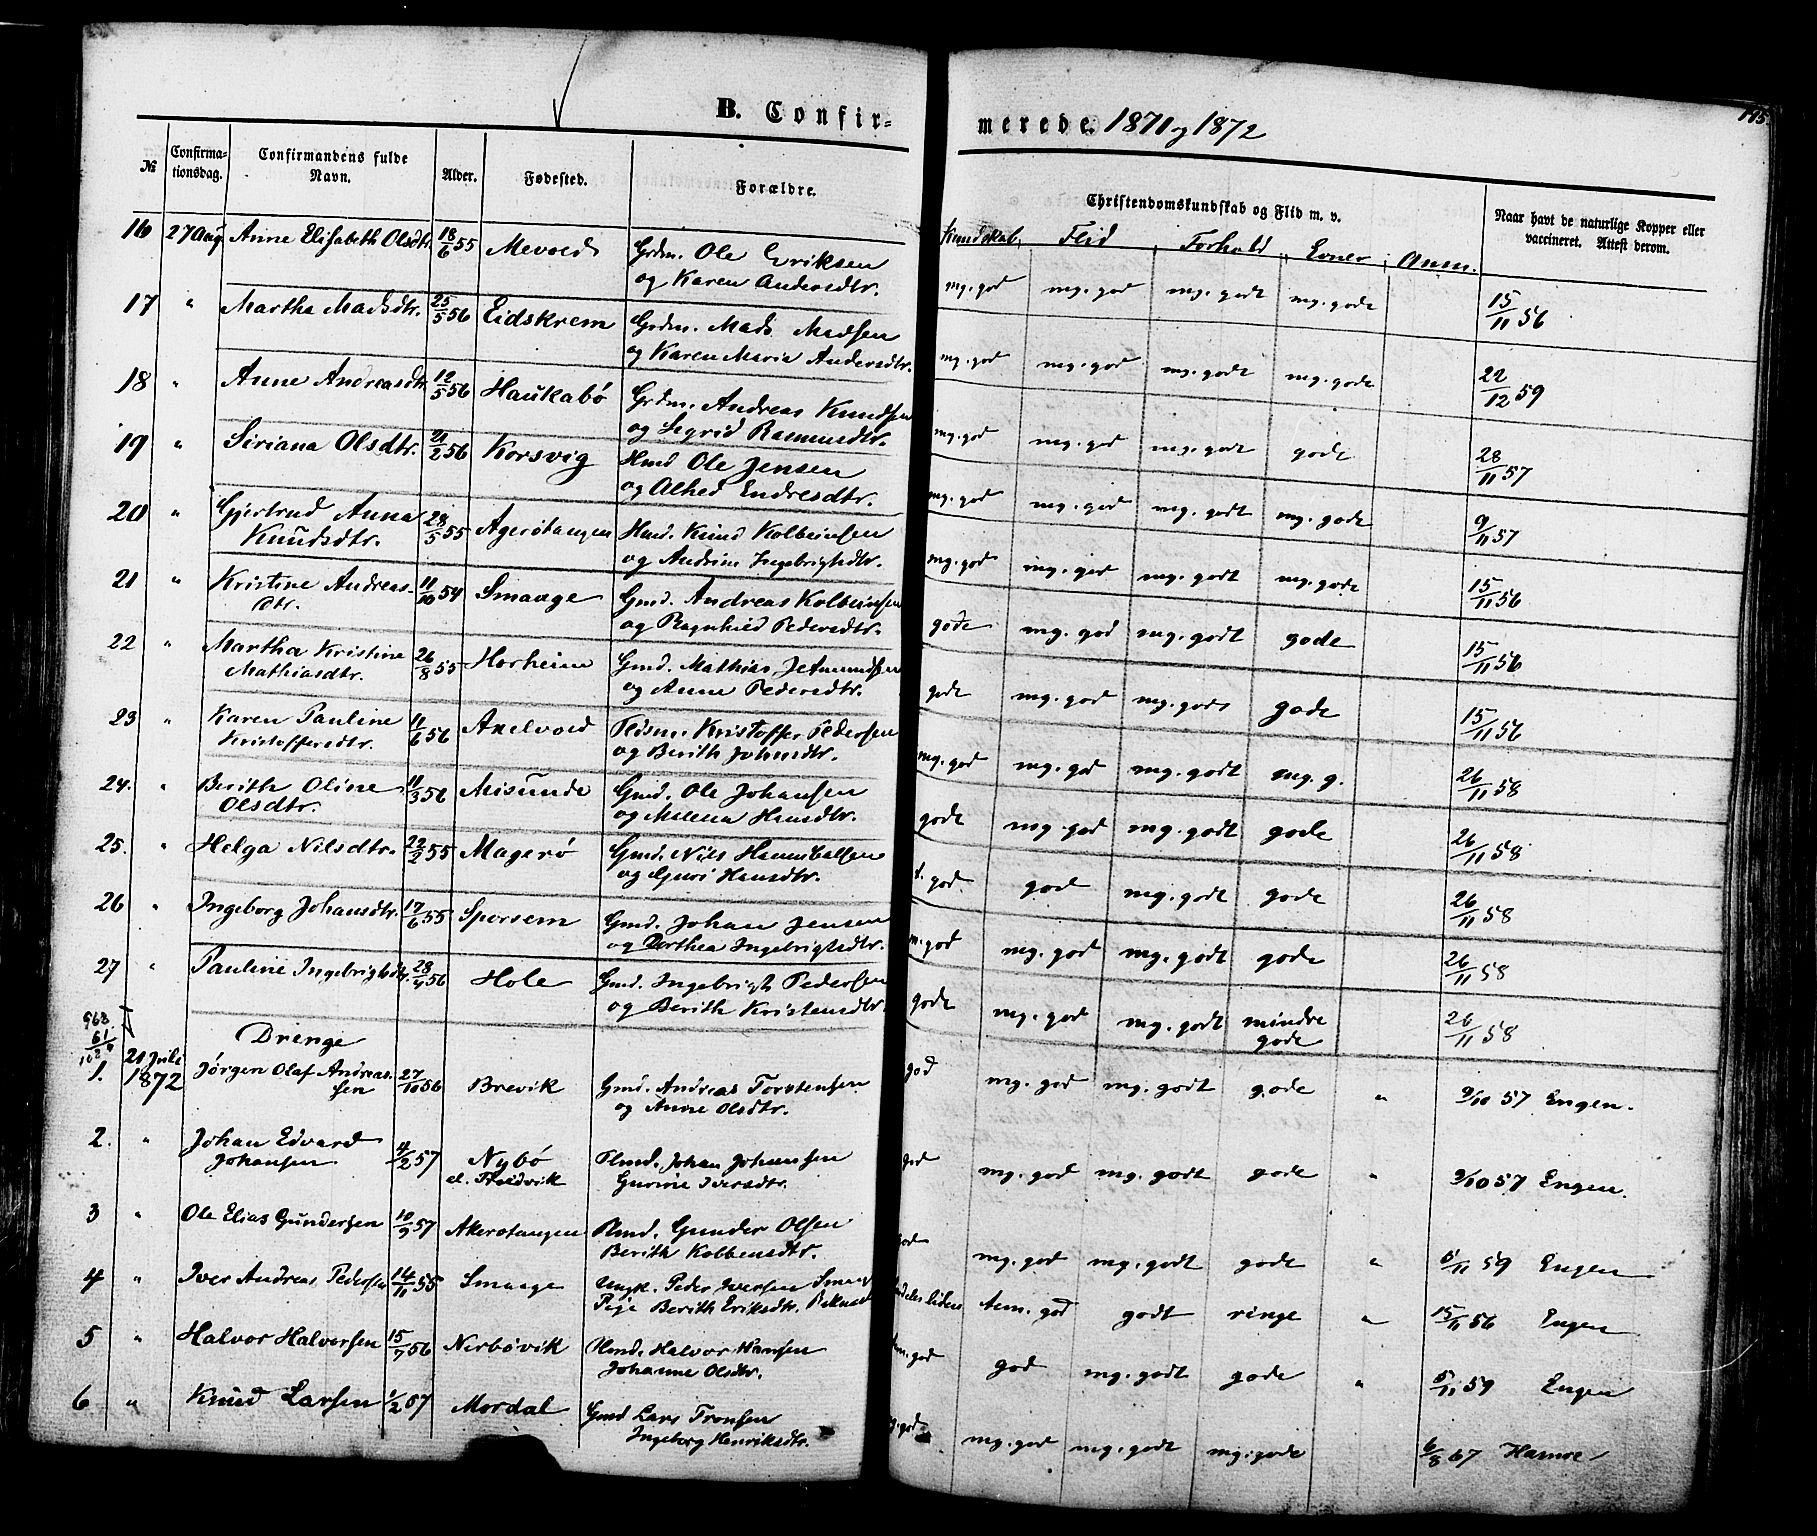 B. Confirmerede. 1871 og 1872
195.
№ | Confirmationsdag. | Confirmandens fulde Navn. | Alder. | Fødested. | Forældre. | Christendomskundskab og Flid m. v. | Naar havt de naturlige Kopper eller vaccineret. Attest derom.
Kundskab, Flid, Forhold, Evner, Anm.
16 27 Aug Anne Elisabeth Olsdtr. 18/6 55 Mevold Grdm. Ole Eriksen og Karen Andersdtr. mg. god mg. god mg. godt mg. gode 15/11 56
17 " Martha Madsdtr. 25/5 56 Eidskrem Grdm. Mads Madsen og Karen Maria Andersdtr. mg. god mg. god mg. godt mg. gode 22/12 59
18 " Anne Andreasdtr. 12/5 56 Haukabø Grdm. Andreas Knudsen og Sigrid Rasmusdtr. mg. god mg. god mg. godt gode 28/11 57
19 " Siriana Olsdtr. 21/2 56 Korsvig Hmd Ole Jensen og Alhed Endresdtr. mg. god mg. god mg. godt mg. gode 9/11 57
20 " Gjertrud Anna Knudsdtr. 28/5 55 Agerøtangen Hmd. Knud Kolbeinsen og Andrine Ingebrigtsdtr. mg. god mg. god mg. godt mg. gode 15/11 56
21 " Kristine Andreasdtr. 11/10 54 Smaage Gmd. Andreas Kolbeinsen og Ragnhild Pedersdtr. gode mg. god mg. godt gode 15/11 56
22 " Martha Kristine Mathiasdtr. 26/8 55 Horheim Gmd. Mathias Jetmundsen og Anne Pedersdtr. gode mg. god mg. godt gode 15/11 56
23 " Karen Pauline Kristoffersdtr. 11/6 56 Axelvold Kristoffer Pedersen og Berith Johnsdtr. mg. god mg. god mg. godt mg. g. 26/11 58
24. " Berith Oline Olsdtr. 11/3 56 Misunde Gmd. Ole Johansen og Malena Hansdtr. gode mg. god mg. godt gode 26/11 58
25. " Helga Nilsdtr. 22/2 55 Magerø Gmd. Nils Hannibalsen og Guri Hansdtr. t. god. god mg. godt gode 26/11 58
26 " Ingeborg Johansdtr. 17/6 55 Sporsem Gmd. Johan Jensen og Dorthea Ingebrigtsdtr. m. god mg. god mg. godt gode 26/11 58
27 " Pauline Ingebrigtsdtr. 28/4 56 Hole Gmd. Ingebrigt Pedersen og Berith Kristensdtr. gode mg. god mg. godt mindre gode 26/11 58
968
61
Drenge
1. 21 Juli 1872 Jørgen Olaf Andreassen 27/10 56 Brevik Gmd. Andreas Torstensen og Anne Olsdtr. god mg. god mg. godt gode " 9/10 57 Engen.
2. " Johan Edvard Johansen 4/2 57 Nybø Johan Johansen Iversdtr. god mg. god mg. godt gode " 9/10 57 Engen.
3 " Ole Elias Gundersen 10/9 57 Akerøtangen Hmd. Gunder Olsen Berith Kolbensdtr. gode mg. god mg. godt gode " 5/11 59 Engen
4 " Iver Andreas Pedersen 14/11 55 Smaage Ungk. Peder Iversen Smaage Pige Berith Eriksdtr. Tem. god godt ringe " 15/11 56 Engen
5 " Halvor Halvorsen 15/7 56 Nerbøvik Hmd. Halvor Hansen Johanne Olsdtr. god god mg. godt gode " 5/11 59 Engen
6 " Knud Larsen 1/2 57 Mordal Gmd Lars Tronsen Ingeborg Henriksdtr. mg. god mg. god mg. godt mg. gode 6/8 67 Harnoe